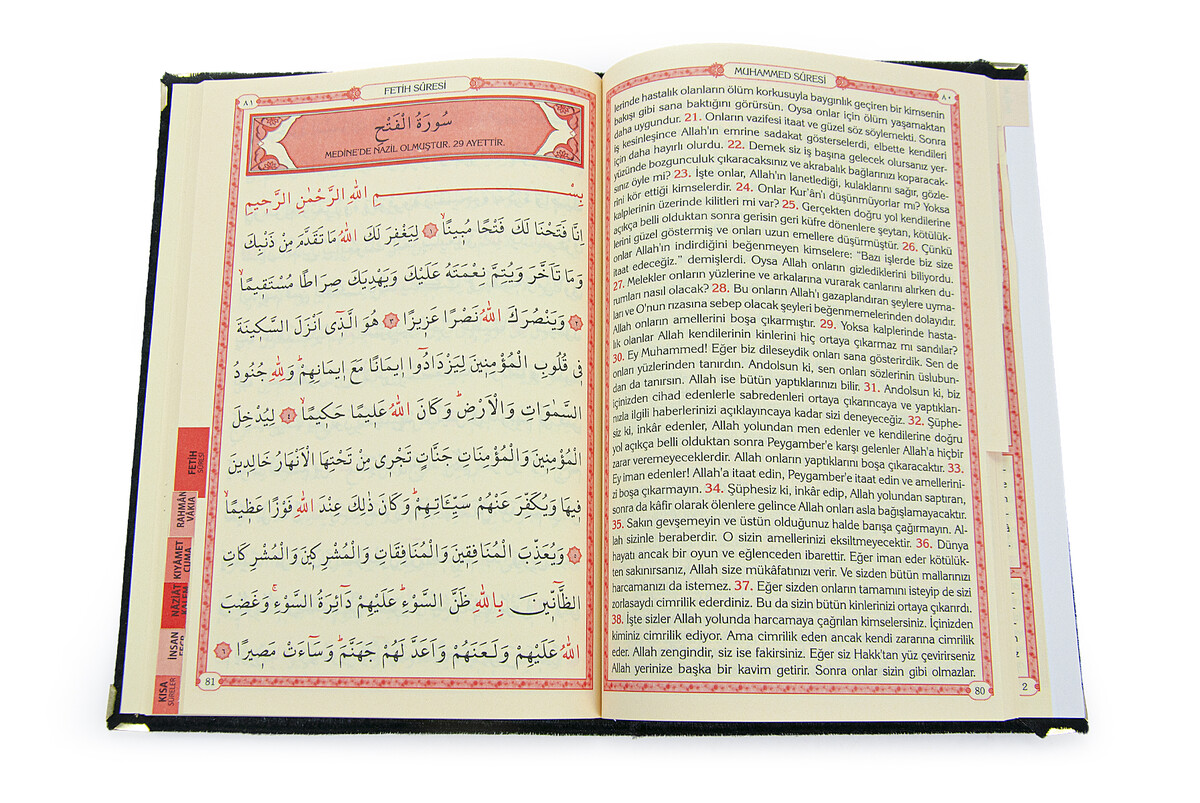 MUHAMMED SÛRESİ
٨٠
lerinde hastalık olanların ölüm korkusuyla baygınlık geçiren bir kimsenin
bakışı gibi sana baktığını görürsün. Oysa onlar için ölüm yaşamaktan
daha uygundur. 21. Onların vazifesi itaat ve güzel söz söylemekti. Sonra
iş kesinleşince Allah'ın emrine sadakat gösterselerdi, elbette kendileri
için daha hayırlı olurdu. 22. Demek siz iş başına gelecek olursanız yer-
yüzünde bozgunculuk çıkaracaksınız ve akrabalık bağlarınızı koparacak-
sınız öyle mi? 23. İşte onlar, Allah'ın lanetlediği, kulaklarını sağır, gözle-
rini kör ettiği kimselerdir. 24. Onlar Kur'ân'ı düşünmüyorlar mı? Yoksa
kalplerinin üzerinde kilitleri mi var? 25. Gerçekten doğru yol kendilerine
açıkça belli olduktan sonra gerisin geri küfre dönenlere şeytan, kötülük-
lerini güzel göstermiş ve onları uzun emellere düşürmüştür. 26. Çünkü
onlar Allah'ın indirdiğini beğenmeyen kimselere: "Bazı işlerde biz size
itaat edeceğiz." demişlerdi. Oysa Allah onların gizlediklerini biliyordu.
27. Melekler onların yüzlerine ve arkalarına vurarak canlarını alırken du-
rumları nasıl olacak? 28. Bu onların Allah'ı gazaplandıran şeylere uyma-
ları ve O'nun rızasına sebep olacak şeyleri beğenmemelerinden dolayıdır.
Allah onların amellerini boşa çıkarmıştır. 29. Yoksa kalplerinde hasta-
lık olanlar Allah kendilerinin kinlerini hiç ortaya çıkarmaz mı sandılar?
30. Ey Muhammed! Eğer biz dileseydik onları sana gösterirdik. Sen de
onları yüzlerinden tanırdın. Andolsun ki, sen onları sözlerinin üslubun-
dan da tanırsın. Allah ise bütün yaptıklarınızı bilir. 31. Andolsun ki, biz
içinizden cihad edenlerle sabredenleri ortaya çıkarıncaya ve yaptıkları-
nızla ilgili haberlerinizi açıklayıncaya kadar sizi deneyeceğiz. 32. Şüphe-
siz ki, inkâr edenler, Allah yolundan men edenler ve kendilerine doğru
yol açıkça belli olduktan sonra Peygamber'e karşı gelenler Allah'a hiçbir
zarar veremeyeceklerdir. Allah onların yaptıklarını boşa çıkaracaktır. 33.
Ey iman edenler! Allah'a itaat edin, Peygamber'e itaat edin ve amellerini-
zi boşa çıkarmayın. 34. Şüphesiz ki, inkâr edip, Allah yolundan saptıran,
sonra da kâfir olarak ölenlere gelince Allah onları asla bağışlamayacaktır.
35. Sakın gevşemeyin ve üstün olduğunuz halde barışa çağırmayın. Al-
lah sizinle beraberdir. O sizin amellerinizi eksiltmeyecektir. 36. Dünya
hayatı ancak bir oyun ve eğlenceden ibarettir. Eğer iman eder kötülük-
ten sakınırsanız, Allah size mükâfatınızı verir. Ve sizden bütün mallarınızı
harcamanızı da istemez. 37. Eğer sizden onların tamamını isteyip de sizi
zorlasaydı cimrilik ederdiniz. Bu da sizin bütün kinlerinizi ortaya çıkarırdı.
38. İşte sizler Allah yolunda harcamaya çağrılan kimselersiniz. İçinizden
kiminiz cimrilik ediyor. Ama cimrilik eden ancak kendi zararına cimrilik
eder. Allah zengindir, siz ise fakirsiniz. Eğer siz Hakk'tan yüz çevirirseniz
Allah yerinize başka bir kavim getirir. Sonra onlar sizin gibi olmazlar.
80
2
٨١
FETİH SÛRESİ
سُورَةُ الْفَتْحِ
MEDİNE'DE NAZİL OLMUŞTUR. 29 AYETTİR.
بِسْمِ اللهِ الرَّحْمٰنِ الرَّحٖيمِ
اِنَّا فَتَحْنَا لَكَ فَتْحًا مُبٖينًاۙ ﴿١﴾ لِيَغْفِرَ لَكَ اللهُ مَا تَقَدَّمَ مِنْ ذَنْبِكَ
وَمَا تَاَخَّرَ وَيُتِمَّ نِعْمَتَهُ عَلَيْكَ وَيَهْدِيَكَ صِرَاطًا مُسْتَقٖيمًاۙ
﴿٢﴾ وَيَنْصُرَكَ اللهُ نَصْرًا عَزٖيزًا ﴿٣﴾ هُوَ الَّذٖٓى اَنْزَلَ السَّكٖينَةَ
فٖى قُلُوبِ الْمُؤْمِنٖينَ لِيَزْدَادُٓوا اٖيمَانًا مَعَ اٖيمَانِهِمْۜ وَلِلّٰهِ جُنُودُ
السَّمٰوَاتِ وَالْاَرْضِۜ وَكَانَ اللهُ عَلٖيمًا حَكٖيمًاۙ ﴿٤﴾ لِيُدْخِلَ
الْمُؤْمِنٖينَ وَالْمُؤْمِنَاتِ جَنَّاتٍ تَجْرٖى مِنْ تَحْتِهَا الْاَنْهَارُ خَالِدٖينَ
فٖيهَا وَيُكَفِّرَ عَنْهُمْ سَيِّـَٔاتِهِمْۜ وَكَانَ ذٰلِكَ عِنْدَ اللهِ فَوْزًا عَظٖيمًاۙ
﴿٥﴾ وَيُعَذِّبَ الْمُنَافِقٖينَ وَالْمُنَافِقَاتِ وَالْمُشْرِكٖينَ وَالْمُشْرِكَاتِ
الظَّٓانّٖينَ بِاللهِ ظَنَّ السَّوْءِۜ عَلَيْهِمْ دَٓائِرَةُ السَّوْءِۚ وَغَضِبَ
اللهُ عَلَيْهِمْ وَلَعَنَهُمْ وَاَعَدَّ لَهُمْ جَهَنَّمَۜ وَسَٓاءَتْ مَصٖيرًا ﴿٦﴾
81
FETİH
SÛRESİ
RAHMÂN
VÂKIA
KIYÂMET
CUMA
NÂZİÂT
İNSAN
KISA
SÛRELER